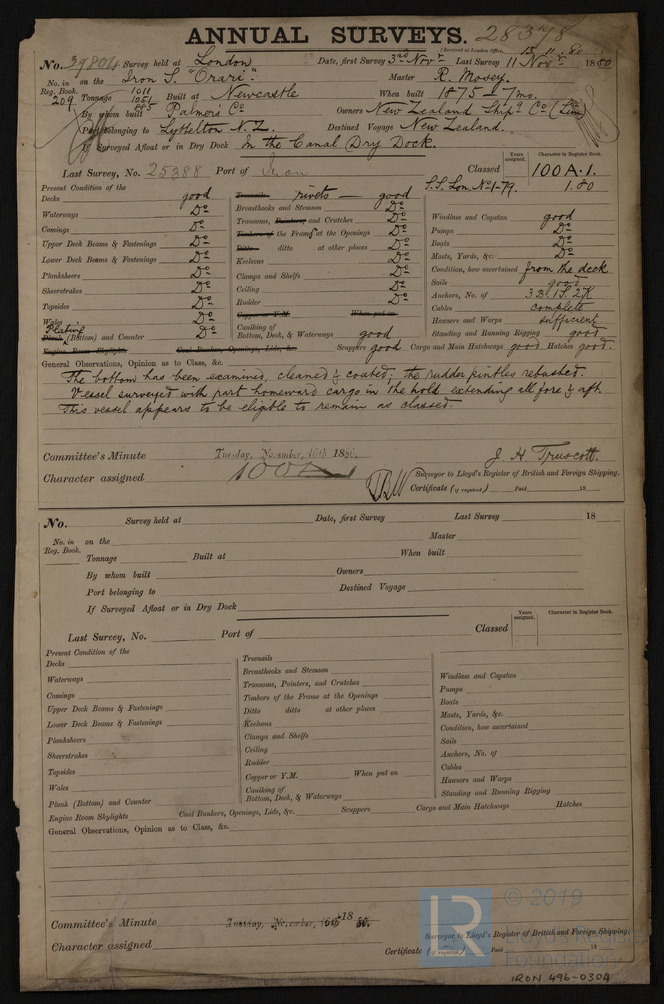 ANNUAL SURVEYS. 28378
(Received at London Office, 15.11.80
No. 39804 Survey held at London Date, first Survey 3rd Novr. Last Survey 11 Novr. 1880
No. in Reg. Book. 209 on the Iron S. "Orari". Master R. Mosey.
Tonnage 1011 1051 885 Built at Newcastle When built 1875 - 7mo.
By whom built Palmers Co Owners New Zealand Shipg. Co (Lim)
Port belonging to Lyttelton N.Z. Destined Voyage New Zealand.
If Surveyed Afloat or in Dry Dock In the Canal Dry Dock.
Last Survey, No. 25388 Port of Classed
Years assigned. Character in Register Book.
100 A.1.
S.S. Lon. No 1-79. 1.80
Present Condition of the
Decks good
Waterways Do
Comings Do
Upper Deck Beams & Fastenings Do
Lower Deck Beams & Fastenings Do
Planksheers Do
Sheerstrakes Do
Topsides Do
Wales Do
Plating
Plank (Bottom) and Counter Do
Engine Room Skylights
Treenails rivets good
Breasthooks and Stemson Do
Transoms, Pointers, and Crutches Do
Timbers of the Frame at the Openings Do
Ditto ditto at other places Do
Keelsons Do
Clamps and Shelfs Do
Ceiling Do
Rudder Do
Copper or Y.M. When put on
Caulking of Bottom, Deck, & Waterways good
Coal Bunkers, Openings, Lids, &c. Scuppers good Cargo and Main Hatchways good Hatches good.
Windlass and Capstan good
Pumps Do
Boats Do
Masts, Yards, &c. Do
Condition, how ascertained from the deck
Sails good
Anchors, No. of 3 B. 1 S. 2 K
Cables complete
Hawsers and Warps sufficient
Standing and Running Rigging good
General Observations, Opinion as to Class, &c.
The bottom has been examined, cleaned & coated; the rudder pintles rebushed.
Vessel surveyed with part homeward cargo in the hold extending all fore & aft.
This vessel appears to be eligible to remain as classed.
Committee's Minute Tuesday, November, 16th 1880. J. H. Truscott.
Character assigned 100A Surveyor to Lloyd's Register of British and Foreign Shipping.
Certificate (if required) Paid 18
No. Survey held at Date, first Survey Last Survey 18
No. in Reg. Book. on the Master
Tonnage Built at When built
By whom built Owners
Port belonging to Destined Voyage
If Surveyed Afloat or in Dry Dock
Years assigned. Character in Register Book.
Last Survey, No. Port of Classed
Present Condition of the
Decks
Waterways
Comings
Upper Deck Beams & Fastenings
Lower Deck Beams & Fastenings
Planksheers
Sheerstrakes
Topsides
Wales
Plank (Bottom) and Counter
Engine Room Skylights
Treenails
Breasthooks and Stemson
Transoms, Pointers, and Crutches
Timbers of the Frame at the Openings
Ditto ditto at other places
Keelsons
Clamps and Shelfs
Ceiling
Rudder
Copper or Y.M. When put on
Caulking of Bottom, Deck, & Waterways
Coal Bunkers, Openings, Lids, &c. Scuppers Cargo and Main Hatchways Hatches
Windlass and Capstan
Pumps
Boats
Masts, Yards, &c.
Condition, how ascertained
Sails
Anchors, No. of
Cables
Hawsers and Warps
Standing and Running Rigging
General Observations, Opinion as to Class, &c.
Committee's Minute Tuesday, November, 16th 18 80.
Character assigned Surveyor to Lloyd's Register of British and Foreign Shipping.
Certificate (if required) Paid 18
© 2019
Lloyd's Register
Foundation
IRON 496-0304